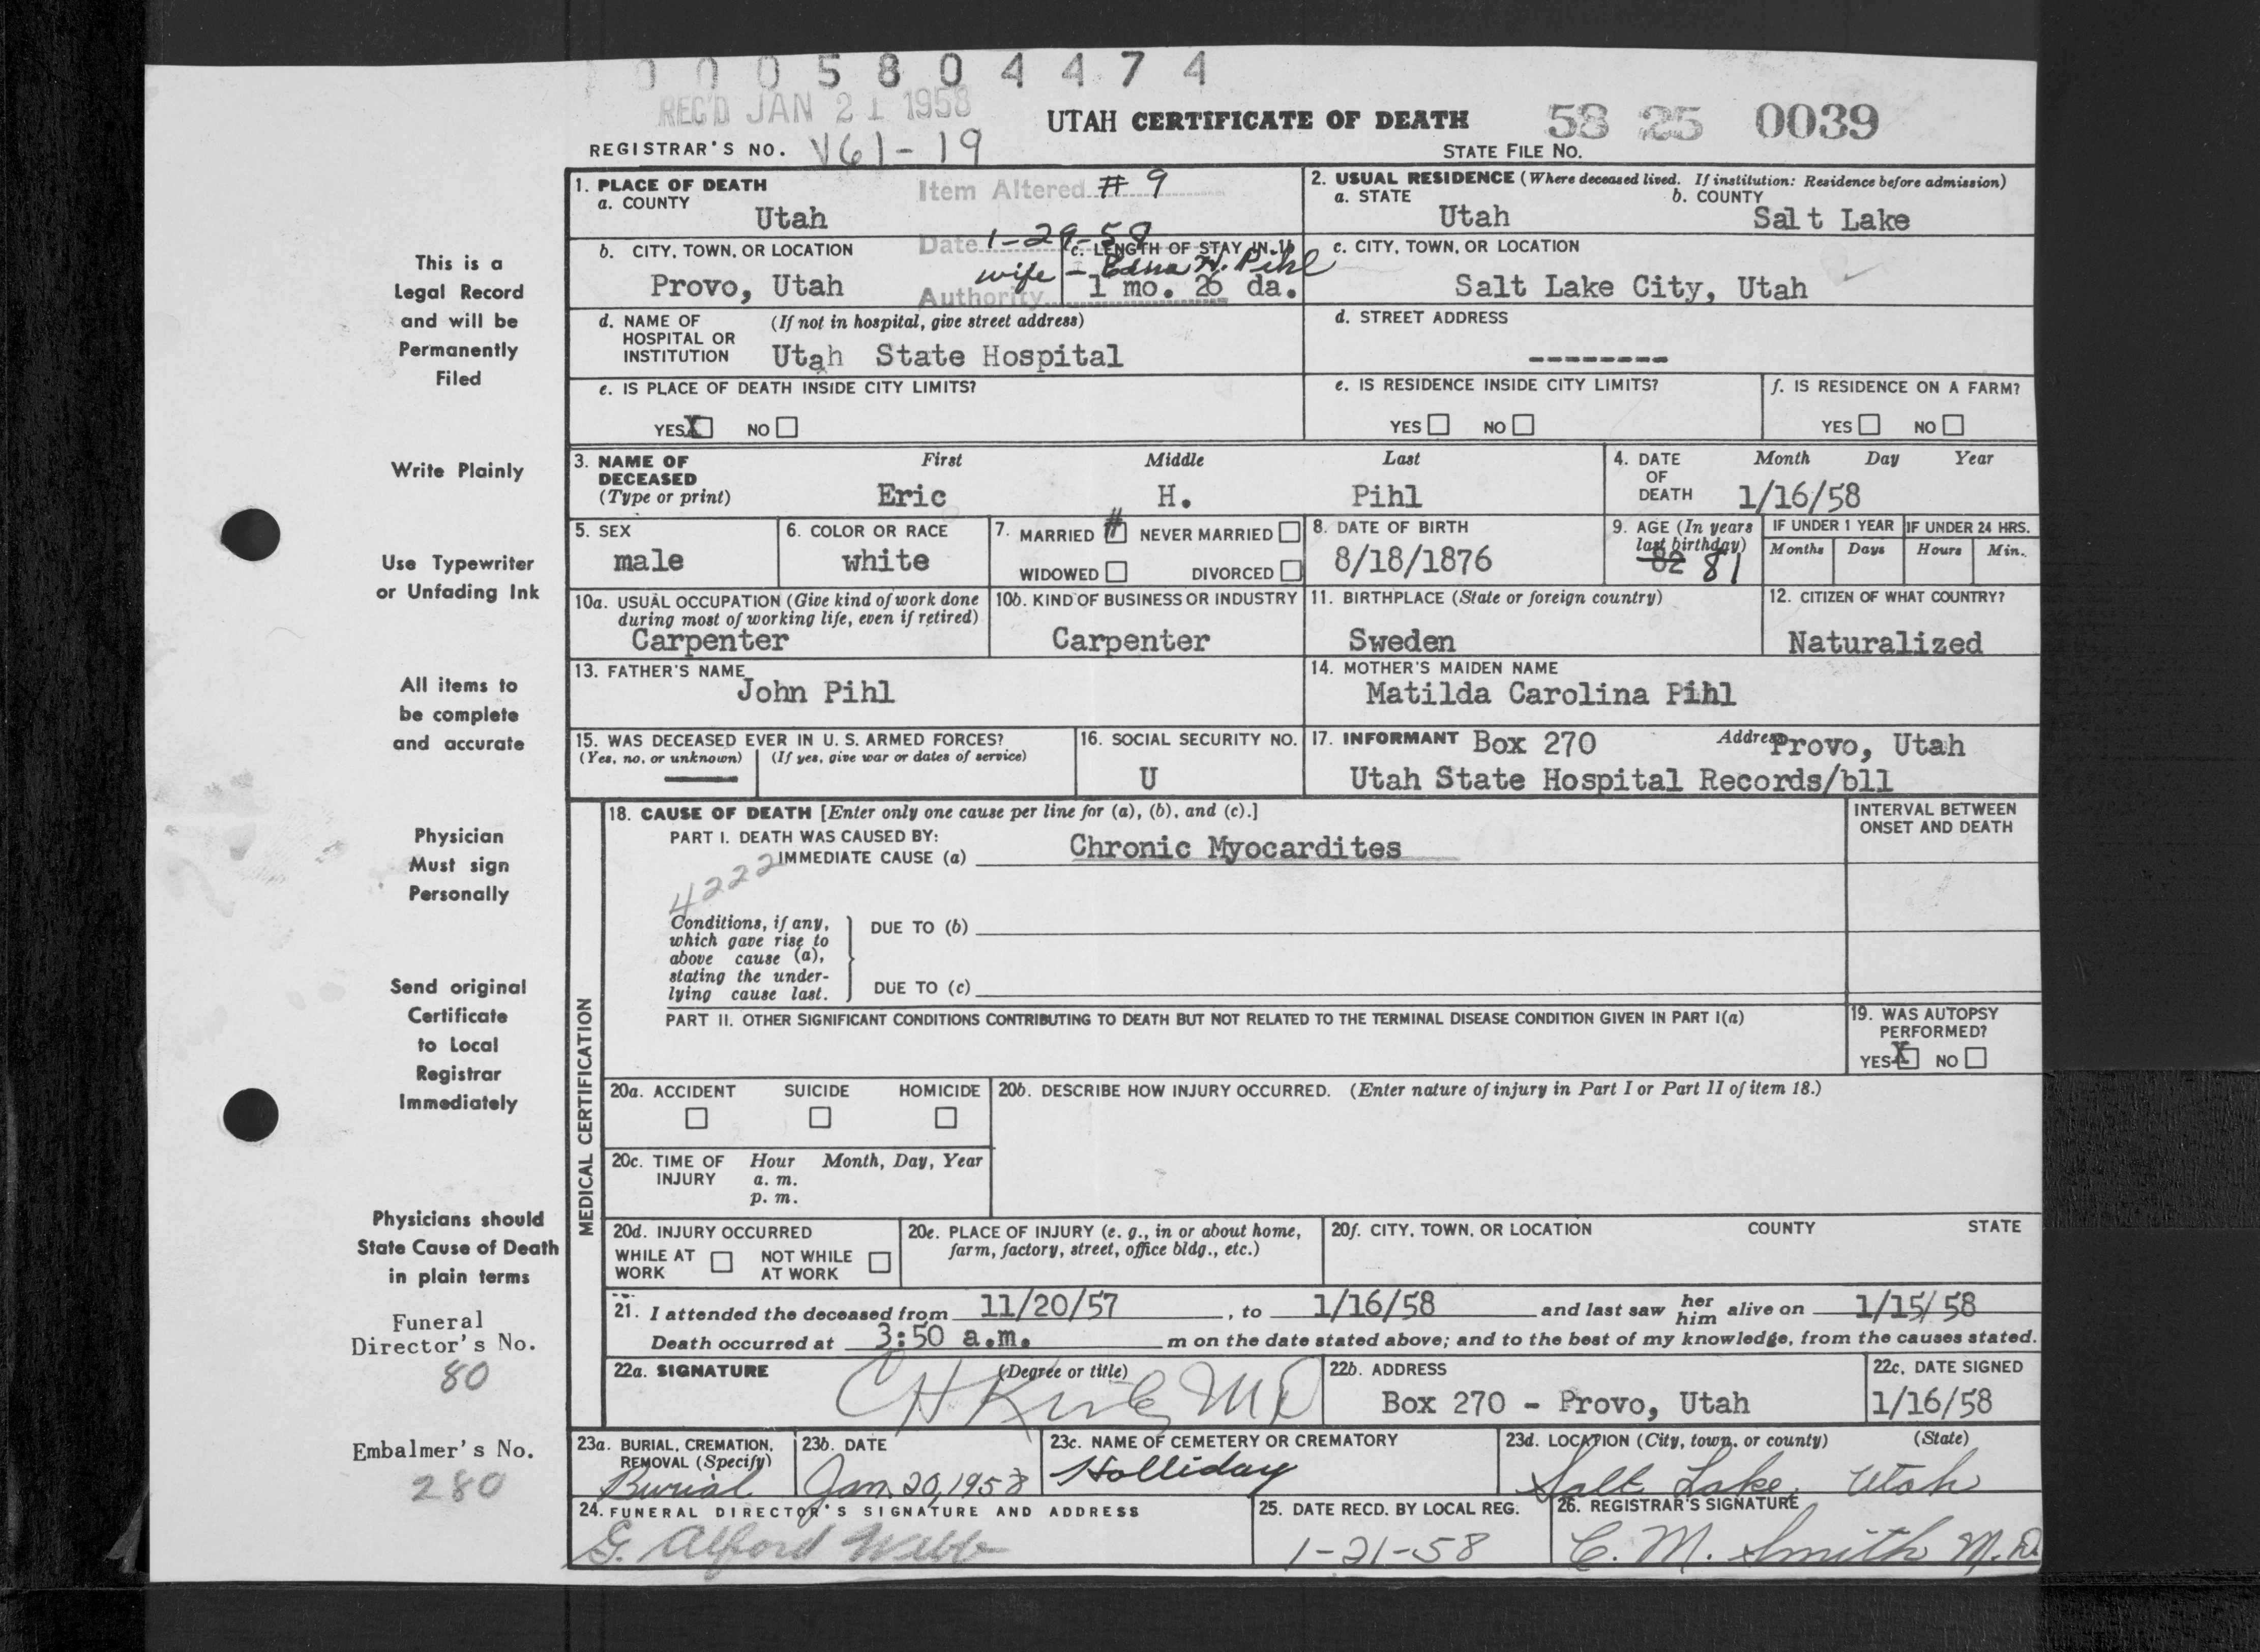 0 0 0 5 8 0 4 4 7 4
REC'D JAN 21 1958
UTAH CERTIFICATE OF DEATH 58 25 0039
REGISTRAR'S NO. V61-19 STATE FILE NO.
This is a
Legal Record
and will be
Permanently
Filed
Write Plainly
Use Typewriter
or Unfading Ink
All items to
be complete
and accurate
Physician
Must sign
Personally
Send original
Certificate
to Local
Registrar
Immediately
Physicians should
State Cause of Death
in plain terms
Funeral
Director's No.
80
Embalmer's No.
280
1. PLACE OF DEATH
a. COUNTY
Utah
Item Altered # 9
Date 1-29-58
wife - Edna N. Pihl
Authority
2. USUAL RESIDENCE (Where deceased lived. If institution: Residence before admission)
a. STATE b. COUNTY
Utah Salt Lake
b. CITY, TOWN, OR LOCATION
Provo, Utah
c. LENGTH OF STAY IN 1b
1 mo. 26 da.
c. CITY, TOWN, OR LOCATION
Salt Lake City, Utah
d. NAME OF (If not in hospital, give street address)
HOSPITAL OR
INSTITUTION Utah State Hospital
d. STREET ADDRESS
--------
e. IS PLACE OF DEATH INSIDE CITY LIMITS?
YES X NO
e. IS RESIDENCE INSIDE CITY LIMITS?
YES NO
f. IS RESIDENCE ON A FARM?
YES NO
3. NAME OF First Middle Last
DECEASED
(Type or print) Eric H. Pihl
4. DATE Month Day Year
OF
DEATH 1/16/58
5. SEX
male
6. COLOR OR RACE
white
7. MARRIED # NEVER MARRIED
WIDOWED DIVORCED
8. DATE OF BIRTH
8/18/1876
9. AGE (In years
last birthday)
82 81
IF UNDER 1 YEAR IF UNDER 24 HRS.
Months Days Hours Min.
10a. USUAL OCCUPATION (Give kind of work done
during most of working life, even if retired)
Carpenter
10b. KIND OF BUSINESS OR INDUSTRY
Carpenter
11. BIRTHPLACE (State or foreign country)
Sweden
12. CITIZEN OF WHAT COUNTRY?
Naturalized
13. FATHER'S NAME
John Pihl
14. MOTHER'S MAIDEN NAME
Matilda Carolina Pihl
15. WAS DECEASED EVER IN U. S. ARMED FORCES?
(Yes, no, or unknown) (If yes, give war or dates of service)
16. SOCIAL SECURITY NO.
U
17. INFORMANT Box 270 Address Provo, Utah
Utah State Hospital Records/bll
MEDICAL CERTIFICATION
18. CAUSE OF DEATH [Enter only one cause per line for (a), (b), and (c).]
INTERVAL BETWEEN
ONSET AND DEATH
PART I. DEATH WAS CAUSED BY:
IMMEDIATE CAUSE (a) Chronic Myocardites
4222
Conditions, if any,
which gave rise to
above cause (a),
stating the under-
lying cause last.
DUE TO (b)
DUE TO (c)
PART II. OTHER SIGNIFICANT CONDITIONS CONTRIBUTING TO DEATH BUT NOT RELATED TO THE TERMINAL DISEASE CONDITION GIVEN IN PART I(a)
19. WAS AUTOPSY
PERFORMED?
YES X NO
20a. ACCIDENT SUICIDE HOMICIDE
20b. DESCRIBE HOW INJURY OCCURRED. (Enter nature of injury in Part I or Part II of item 18.)
20c. TIME OF Hour Month, Day, Year
INJURY a. m.
p. m.
20d. INJURY OCCURRED
WHILE AT NOT WHILE
WORK AT WORK
20e. PLACE OF INJURY (e. g., in or about home,
farm, factory, street, office bldg., etc.)
20f. CITY, TOWN, OR LOCATION COUNTY STATE
21. I attended the deceased from 11/20/57, to 1/16/58 and last saw her him alive on 1/15/58
Death occurred at 3:50 a.m. m on the date stated above; and to the best of my knowledge, from the causes stated.
22a. SIGNATURE (Degree or title)
C H MD
22b. ADDRESS
Box 270 - Provo, Utah
22c. DATE SIGNED
1/16/58
23a. BURIAL, CREMATION,
REMOVAL (Specify)
Burial
23b. DATE
Jan. 20, 1958
23c. NAME OF CEMETERY OR CREMATORY
Holliday
23d. LOCATION (City, town, or county) (State)
Salt Lake, Utah
24. FUNERAL DIRECTOR'S SIGNATURE AND ADDRESS
G. Alford Webb
25. DATE RECD. BY LOCAL REG.
1-21-58
26. REGISTRAR'S SIGNATURE
C. M. Smith M.D.